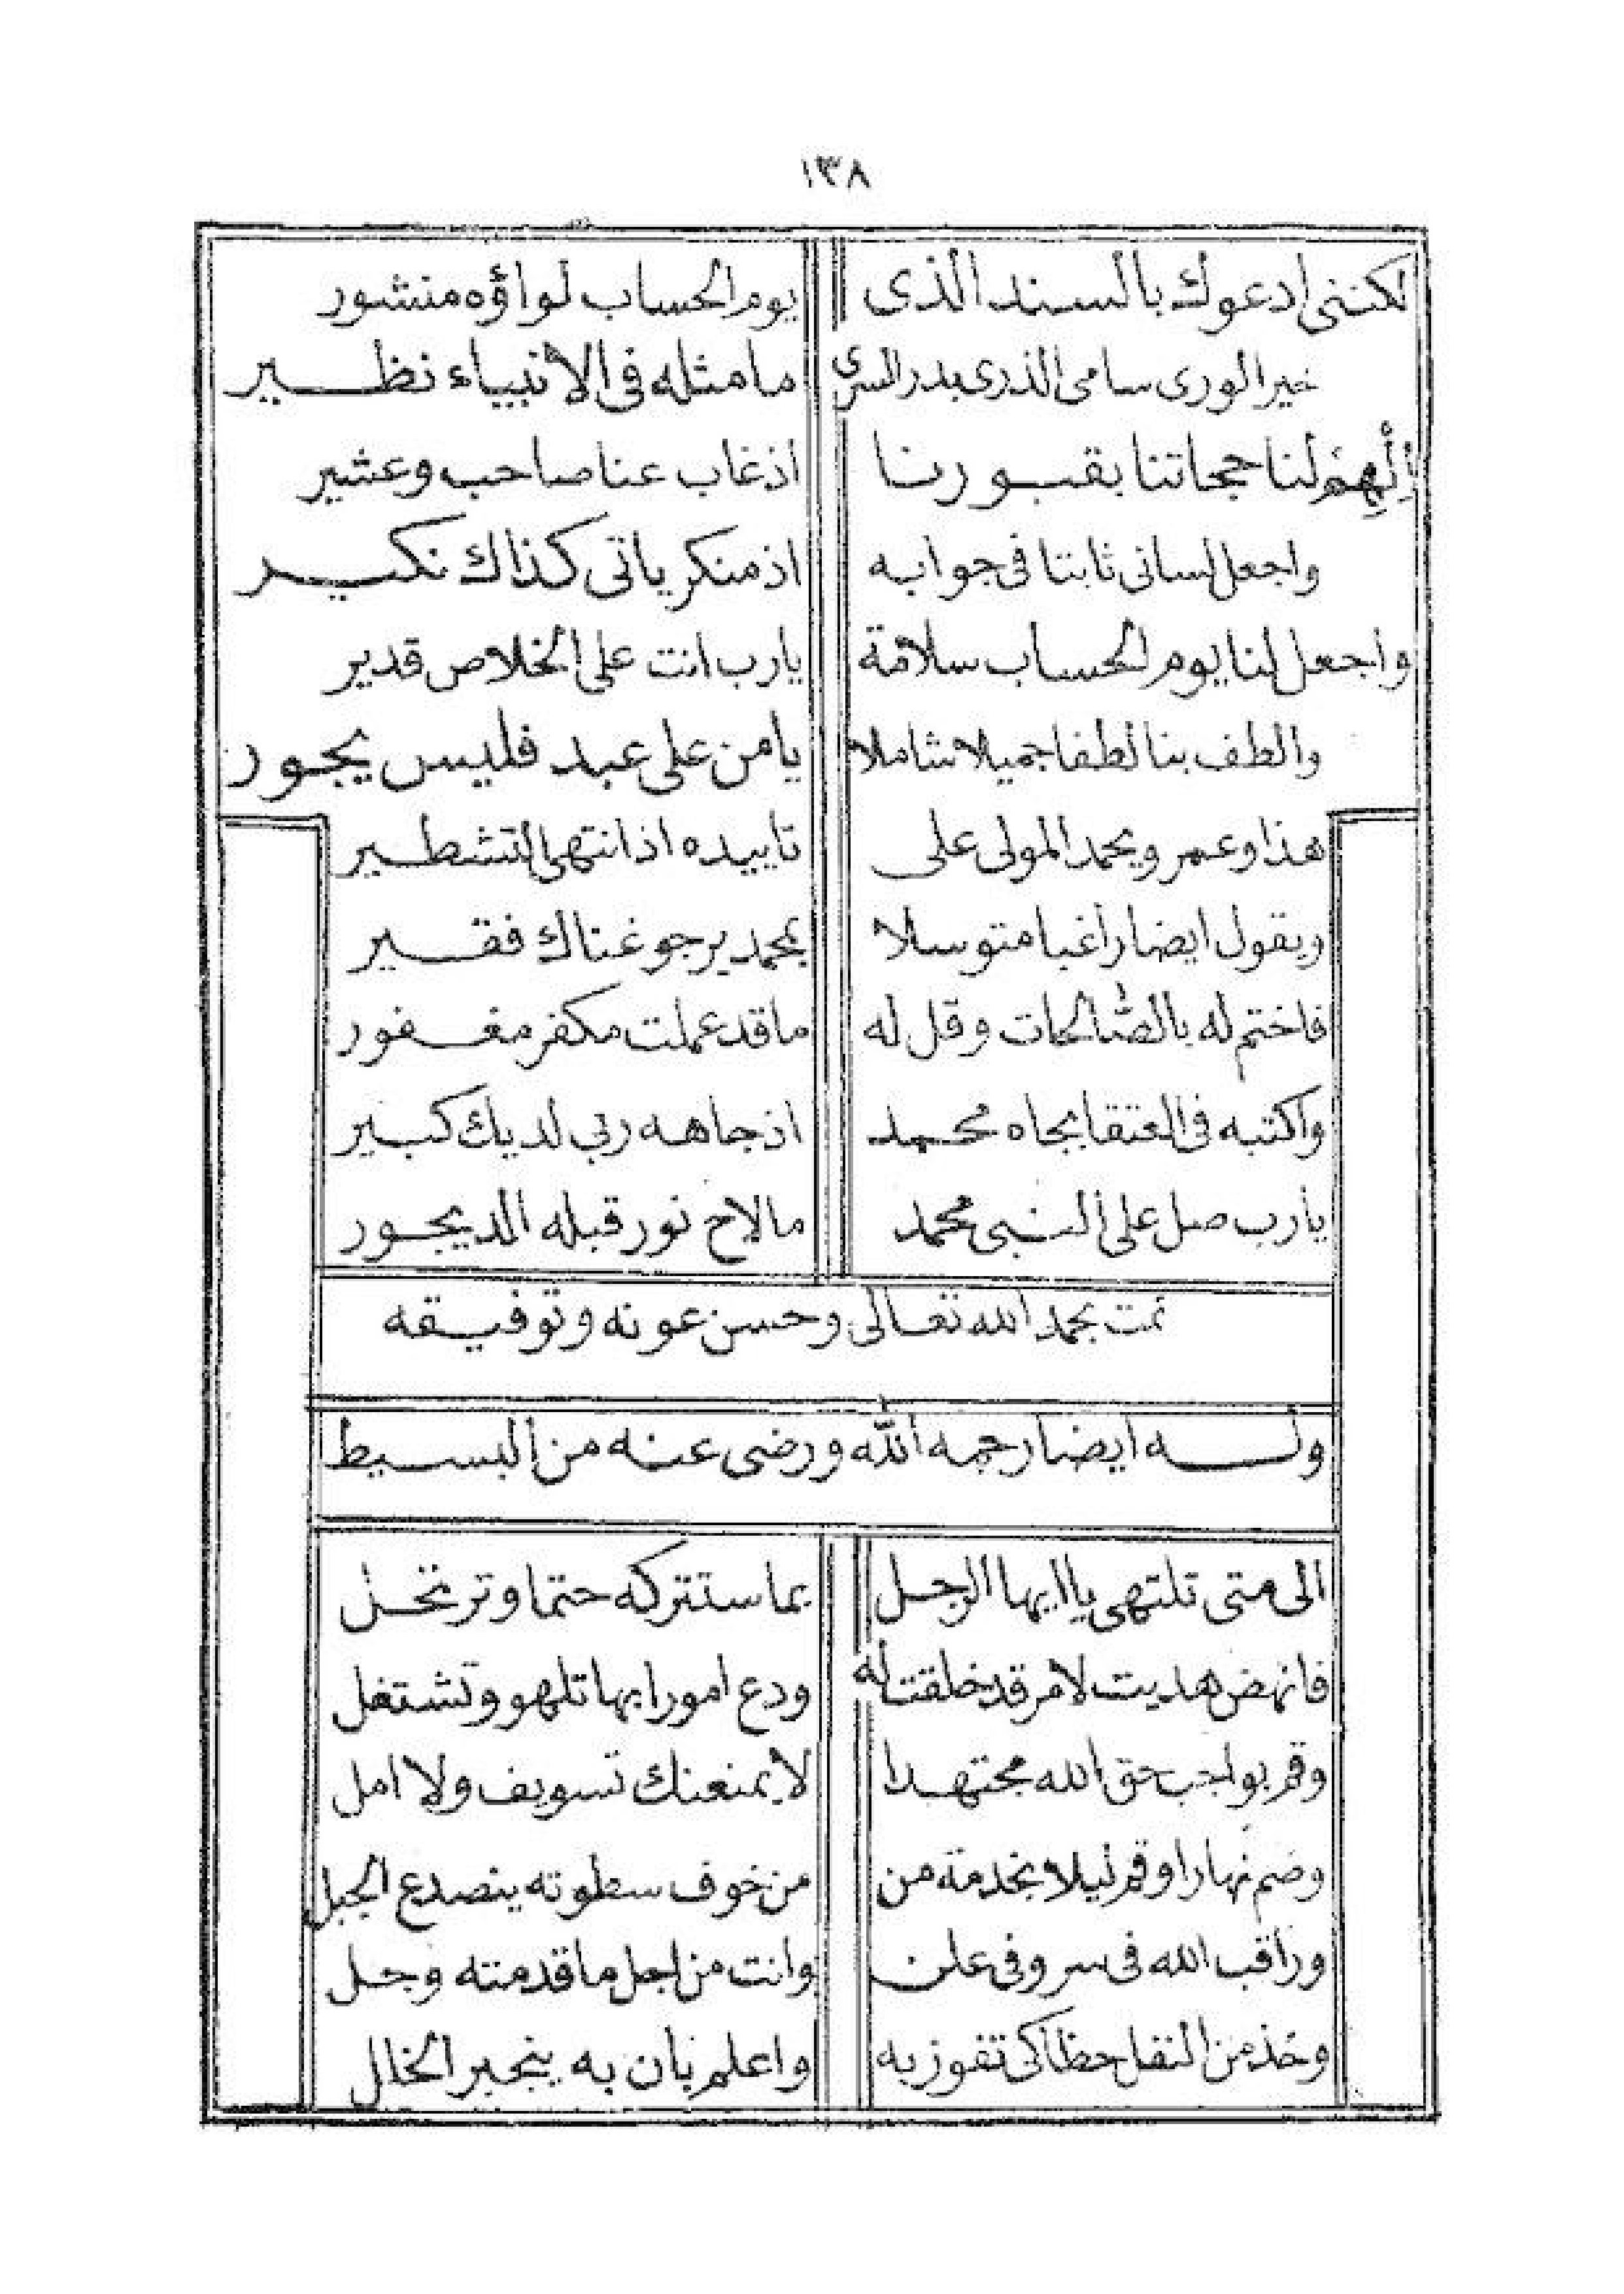 ١٣٨
لكننى ادعوك بالسند الذى يوم الحساب لواؤه منشور
خير الورى سامى الذرى بدر السرى ما مثله فى الانبياء نظير
الهم لنا حجاتنا بقبورنا اذ غاب عنا صاحب وعشير
واجعل لسانى ثابتا فى جوابه اذ منكر ياتى كذاك نكير
واجعل لنا يوم الحساب سلامة يارب انت على الخلاص قدير
والطف بنا لطفا جميلا شاملا يا من على عبد فليس يجور
هذا وعمر ويحمد المولى على تاييده اذ انتهى التشطير
ويقول ايضا راغبا متوسلا بمحمد يرجو غناك فقير
فاختم له بالصّالحات وقل له ما قد عملت مكفر مغفور
واكتبه فى العتقا بجاه محمد اذ جاهه ربى لديك كبير
يارب صل على النبى محمد ما لاح نور قبله الديجور
تمت بحمد الله تعالى وحسن عونه وتوفيقه
وله ايضا رحمه الله ورضى عنه من البسيط
الى متى تلتهى يا ايها الرجل بما ستتركه حتما وترتحل
فانهض هديت لامر قد خلقت له ودع امورا بها تلهو وتشتغل
وقم بواجب حق الله مجتهدا لا يمنعنك تسويف ولا امل
وصم نهارا وقم ليلا بخدمة من من خوف سطوته ينصدع الجبل
وراقب الله فى سر وفى علن وانت من اجل ما قدمته وجل
وخذ من النفل حظا كى تفوز به واعلم بان به ينجبر الخلل